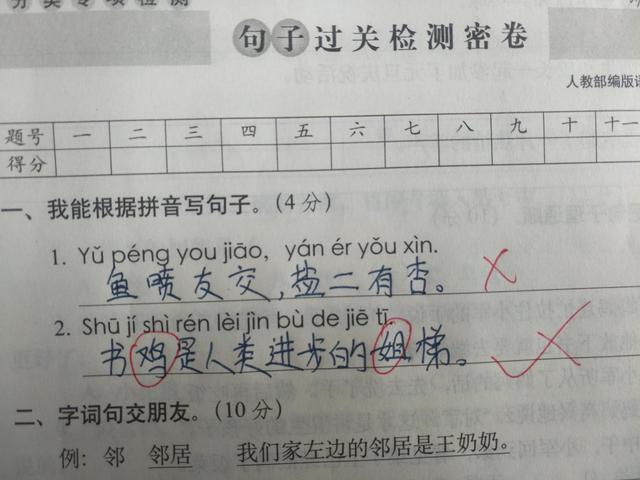 分类专项检测
句子过关检测密卷
人教部编版
题号 一 二 三 四 五 六 七 八 九 十 十一
得分
一、我能根据拼音写句子。(4分)
1. Yǔ péng you jiāo, yán ér yǒu xìn.
鱼喷友交,盐二有杏。
2. Shū jí shì rén lèi jìn bù de jiē tī.
书鸡是人类进步的姐梯。
二、字词句交朋友。(10分)
例:邻 邻居 我们家左边的邻居是王奶奶。